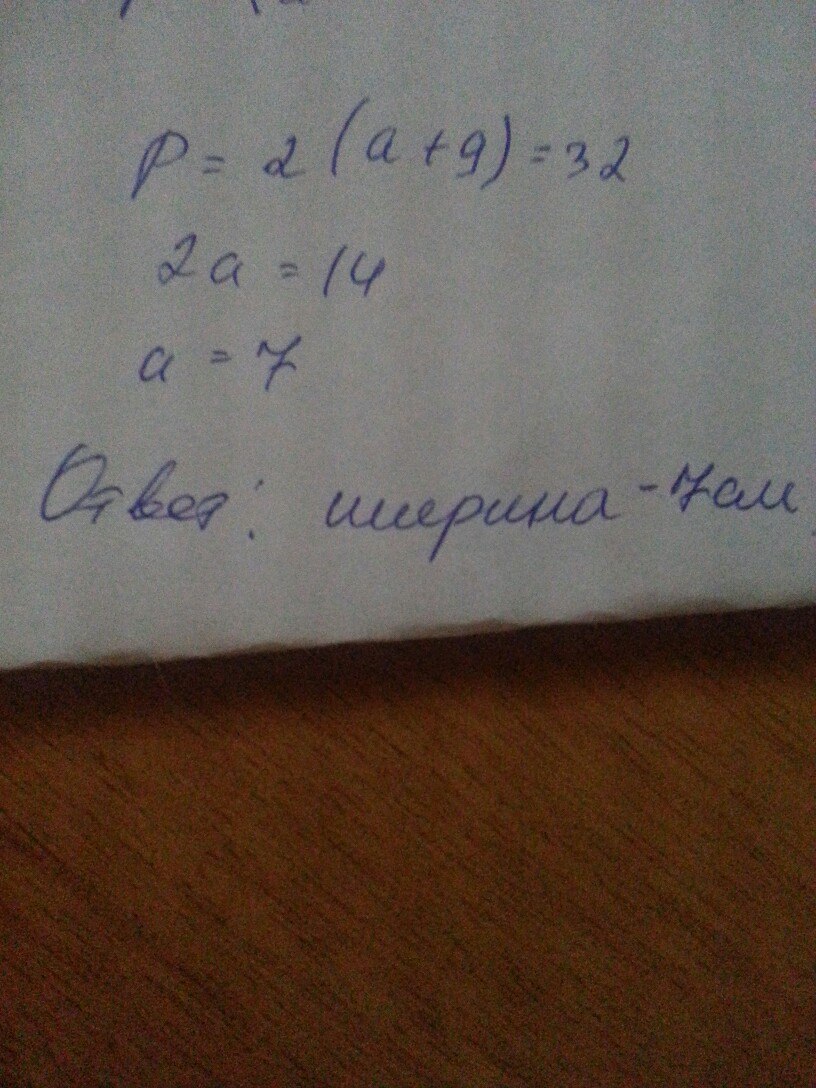 P = 2 (a + 9) = 32
2a = 14
a = 7
Ответ: ширина - 7см